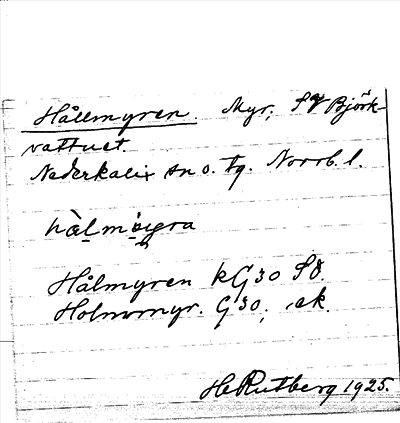 Hållmyren. Myr, SV Björk-
vattnet.
Nederkalix sn o. tg. Norrb. l.
Hålmyren kG30 SO.
Holmmyr. G30, ek.
HeRutberg 1925.